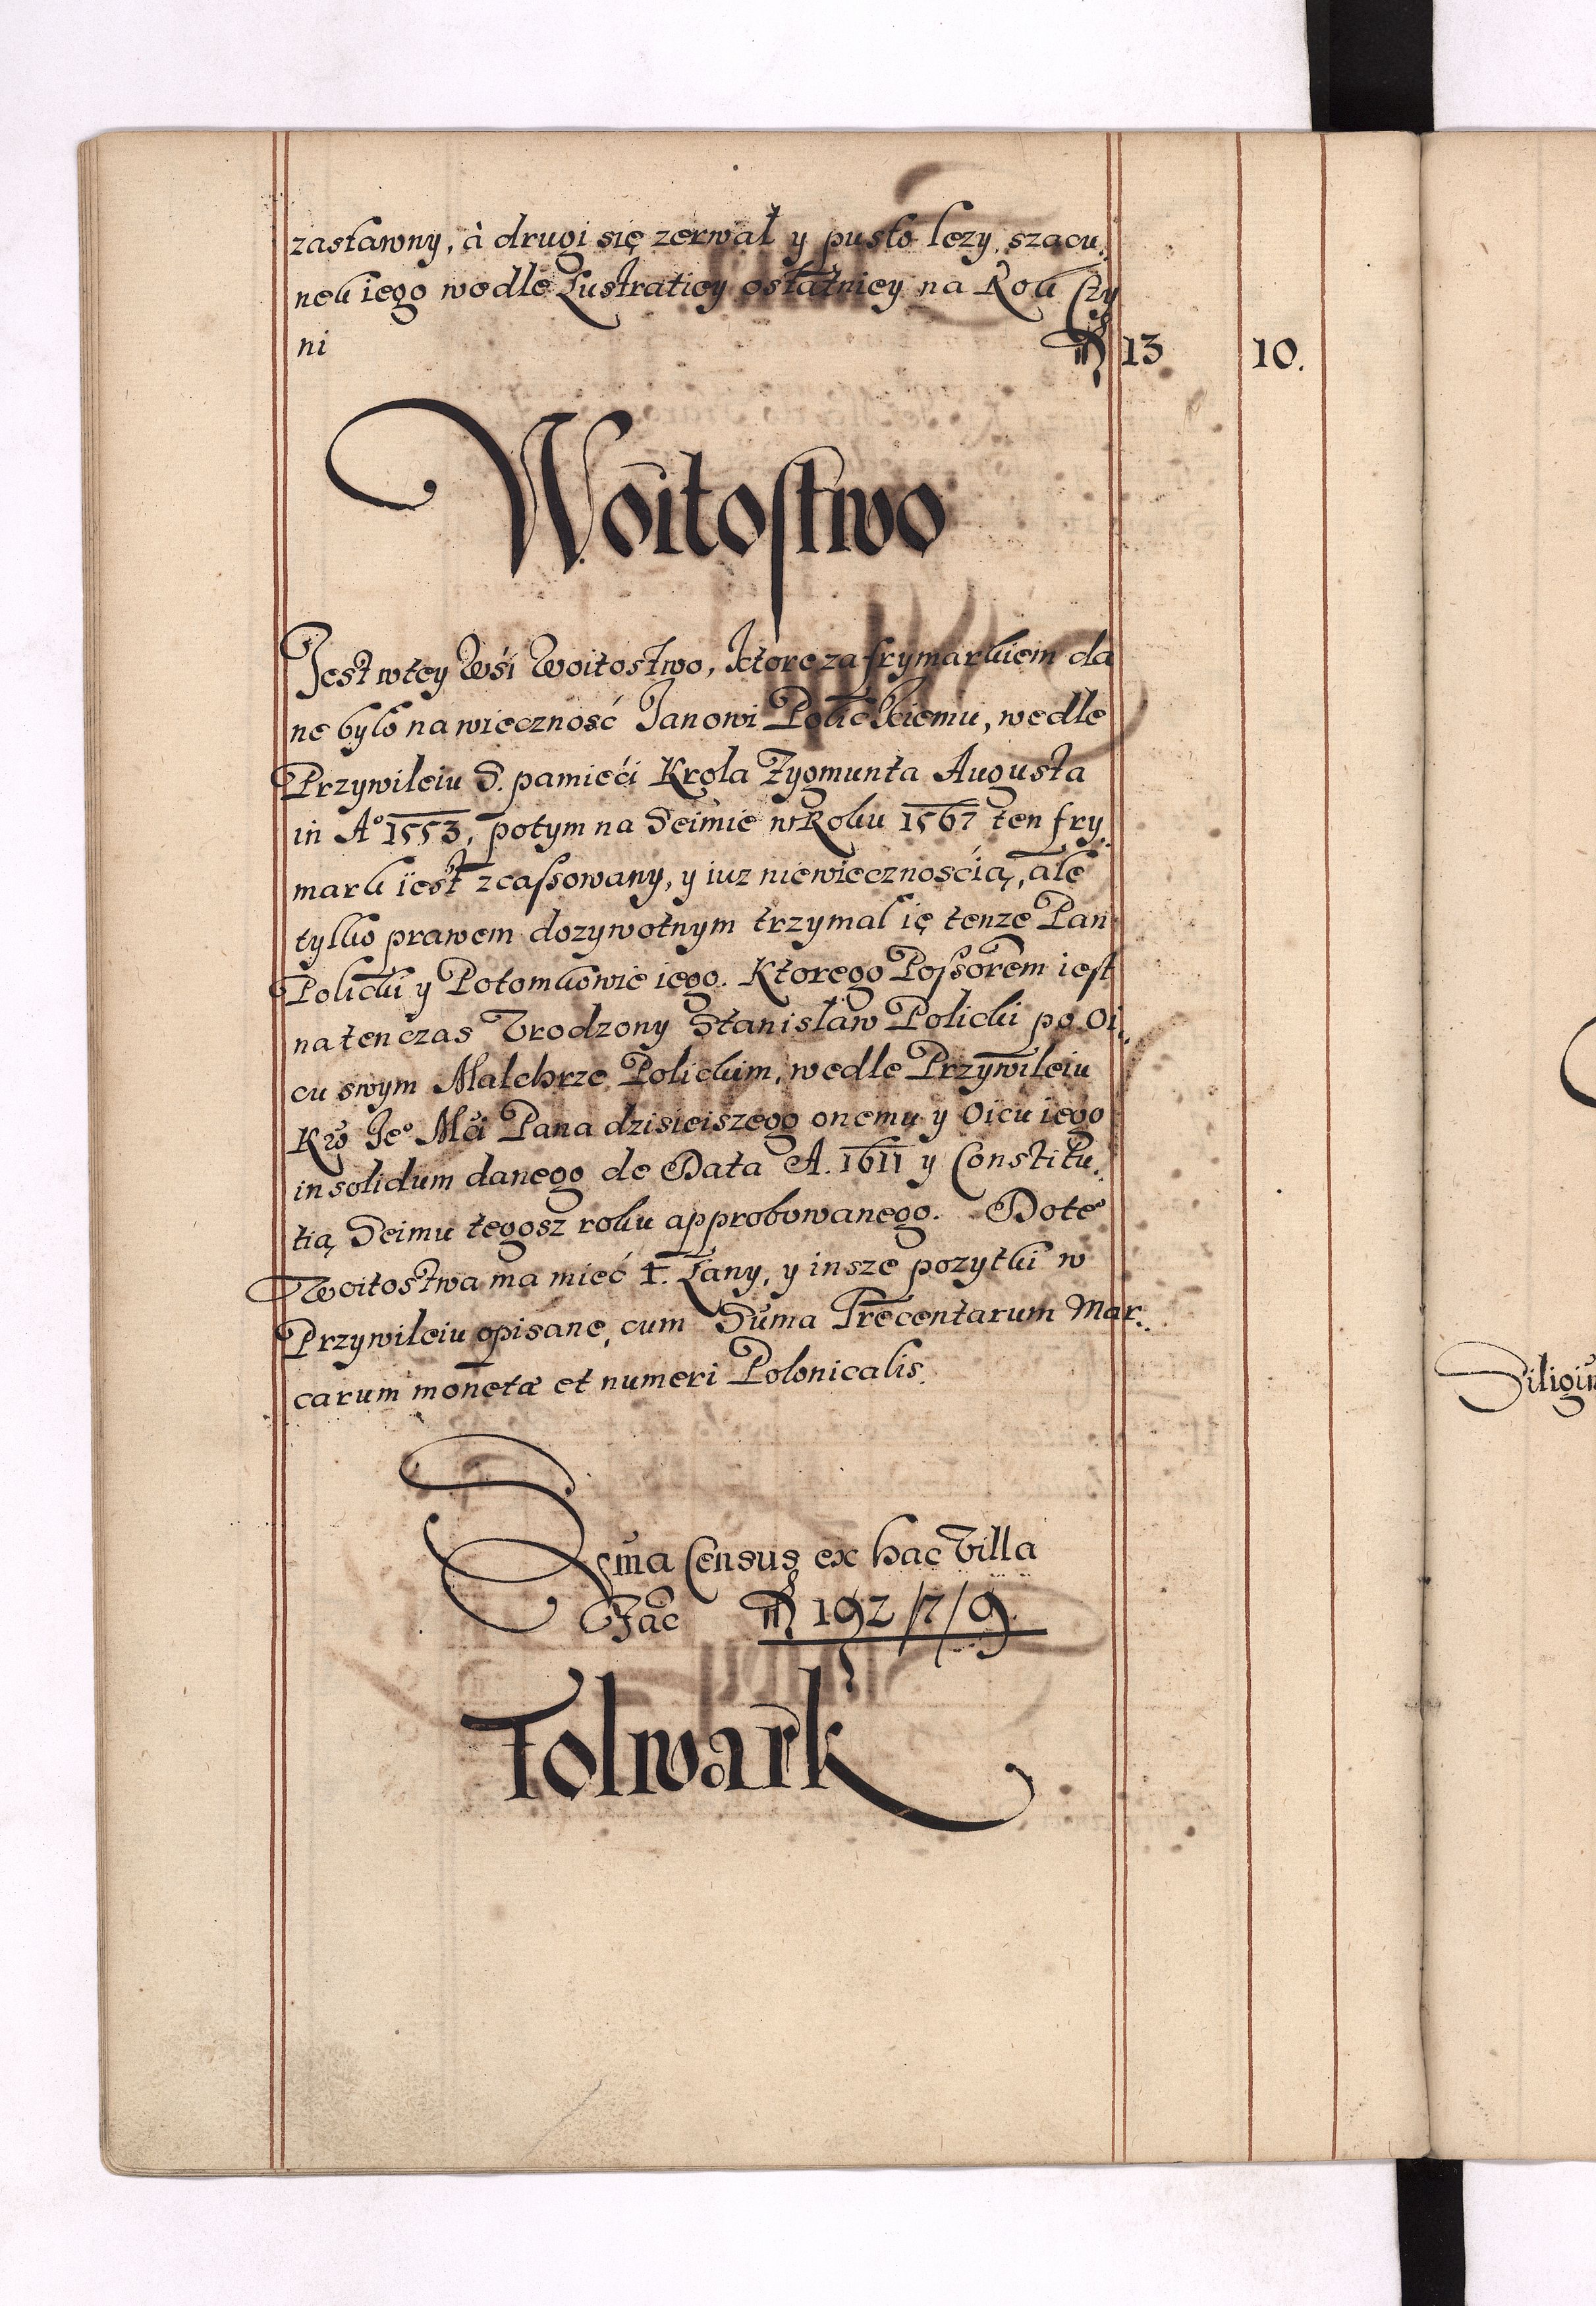 zastawny, à drugi się zerwał y pusto lezy, szacu,
nek iego wedle Lustratiey ostatniey na Rok Czy
ni 13 10.
Woitostwo
Jest w tey Wśi Woitostwo, ktore za frymarkiem da
ne było na wieczność Janowi Polickiemu, wedle
Przywileiu S. pamieći Krola Zygmunta Augusta
in A° 1553, potym na Seimie w Roku 1567 ten fry,
mark iest zcassowany, y iuz nie wiecznością, ale
tylko prawem dozywotnym trzymal ię tenze Pan
Policki y Potomkowie iego. Ktorego Possorem iest
na ten czas Vrodzony Stanisław Policki po Oi,
cu swym Malchrze Polickim, wedle Przywileiu
Kro Jeo Mći Pana dzisieiszego onemu y Oicu iego
in solidum danego de Data A. 1611 y Constitu,
tią Seimu tegosz roku approbowanego. Do te°
Woitostwa ma mieć 4. Łany, y insze pozytki w
Przywileiu opisane, cum Suma Trecentarum Mar,
carum monetæ et numeri Polonicalis.
Suma Census ex hac Villa
Fac 192/7/9.
Folwark
Siligin